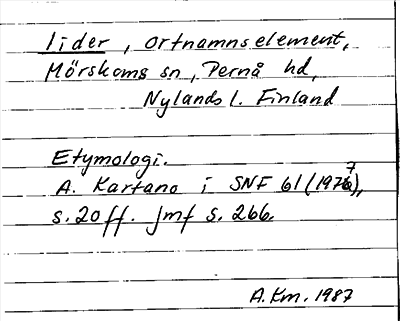 lider, ortnamnselement,
Mörskoms sn, Pernå hd,
Nylands l. Finland
Etymologi.
A. Kartano i SNF 61 (1977),
s. 20 ff. jmf s. 266.
A.Km. 1987